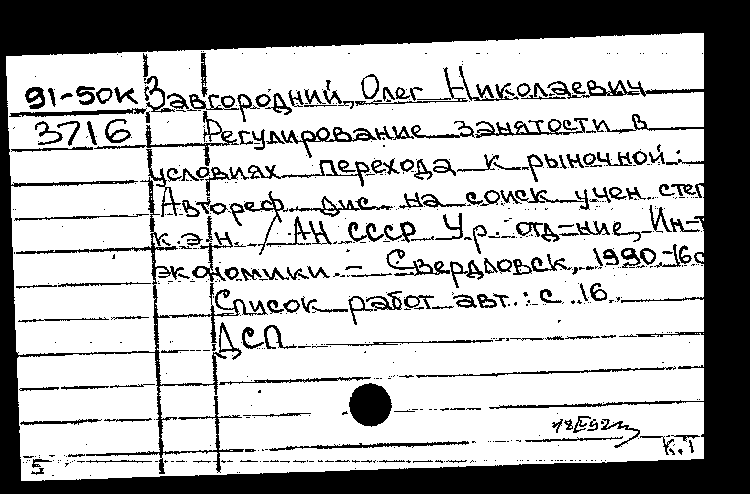 91-50к Завгородний, Олег Николаевич
3716 Регулирование занятости в
условиях перехода к рыночной:
Автореф. дис. на соиск учен степ
к.э.н. / АН СССР Ур. отд-ние, Ин-т
экономики. - Свердловск, 1990.-16с
Список работ авт.: с. 16.
ДСП
5
К.Т